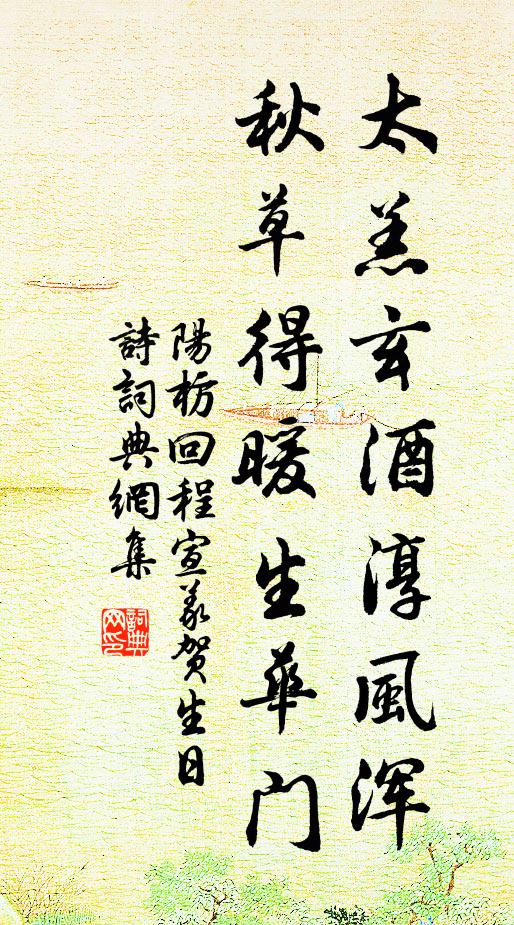 太羔玄酒淳風浑
秋草得暖生華门
陽枋回程宣义贺生日
詩詞典網集
詞典网印